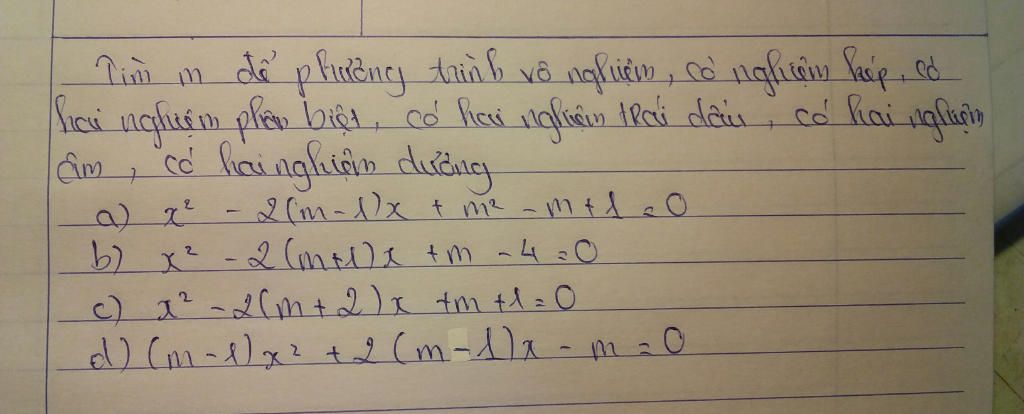 Tìm m để phương trình vô nghiệm, có nghiệm kép, có
hai nghiệm phân biệt, có hai nghiệm trái dấu, có hai nghiệm
âm, có hai nghiệm dương
a) x² - 2(m-1)x + m² - m + 1 = 0
b) x² - 2(m+1)x + m - 4 = 0
c) x² - 2(m+2)x + m + 1 = 0
d) (m-1)x² + 2(m-1)x - m = 0